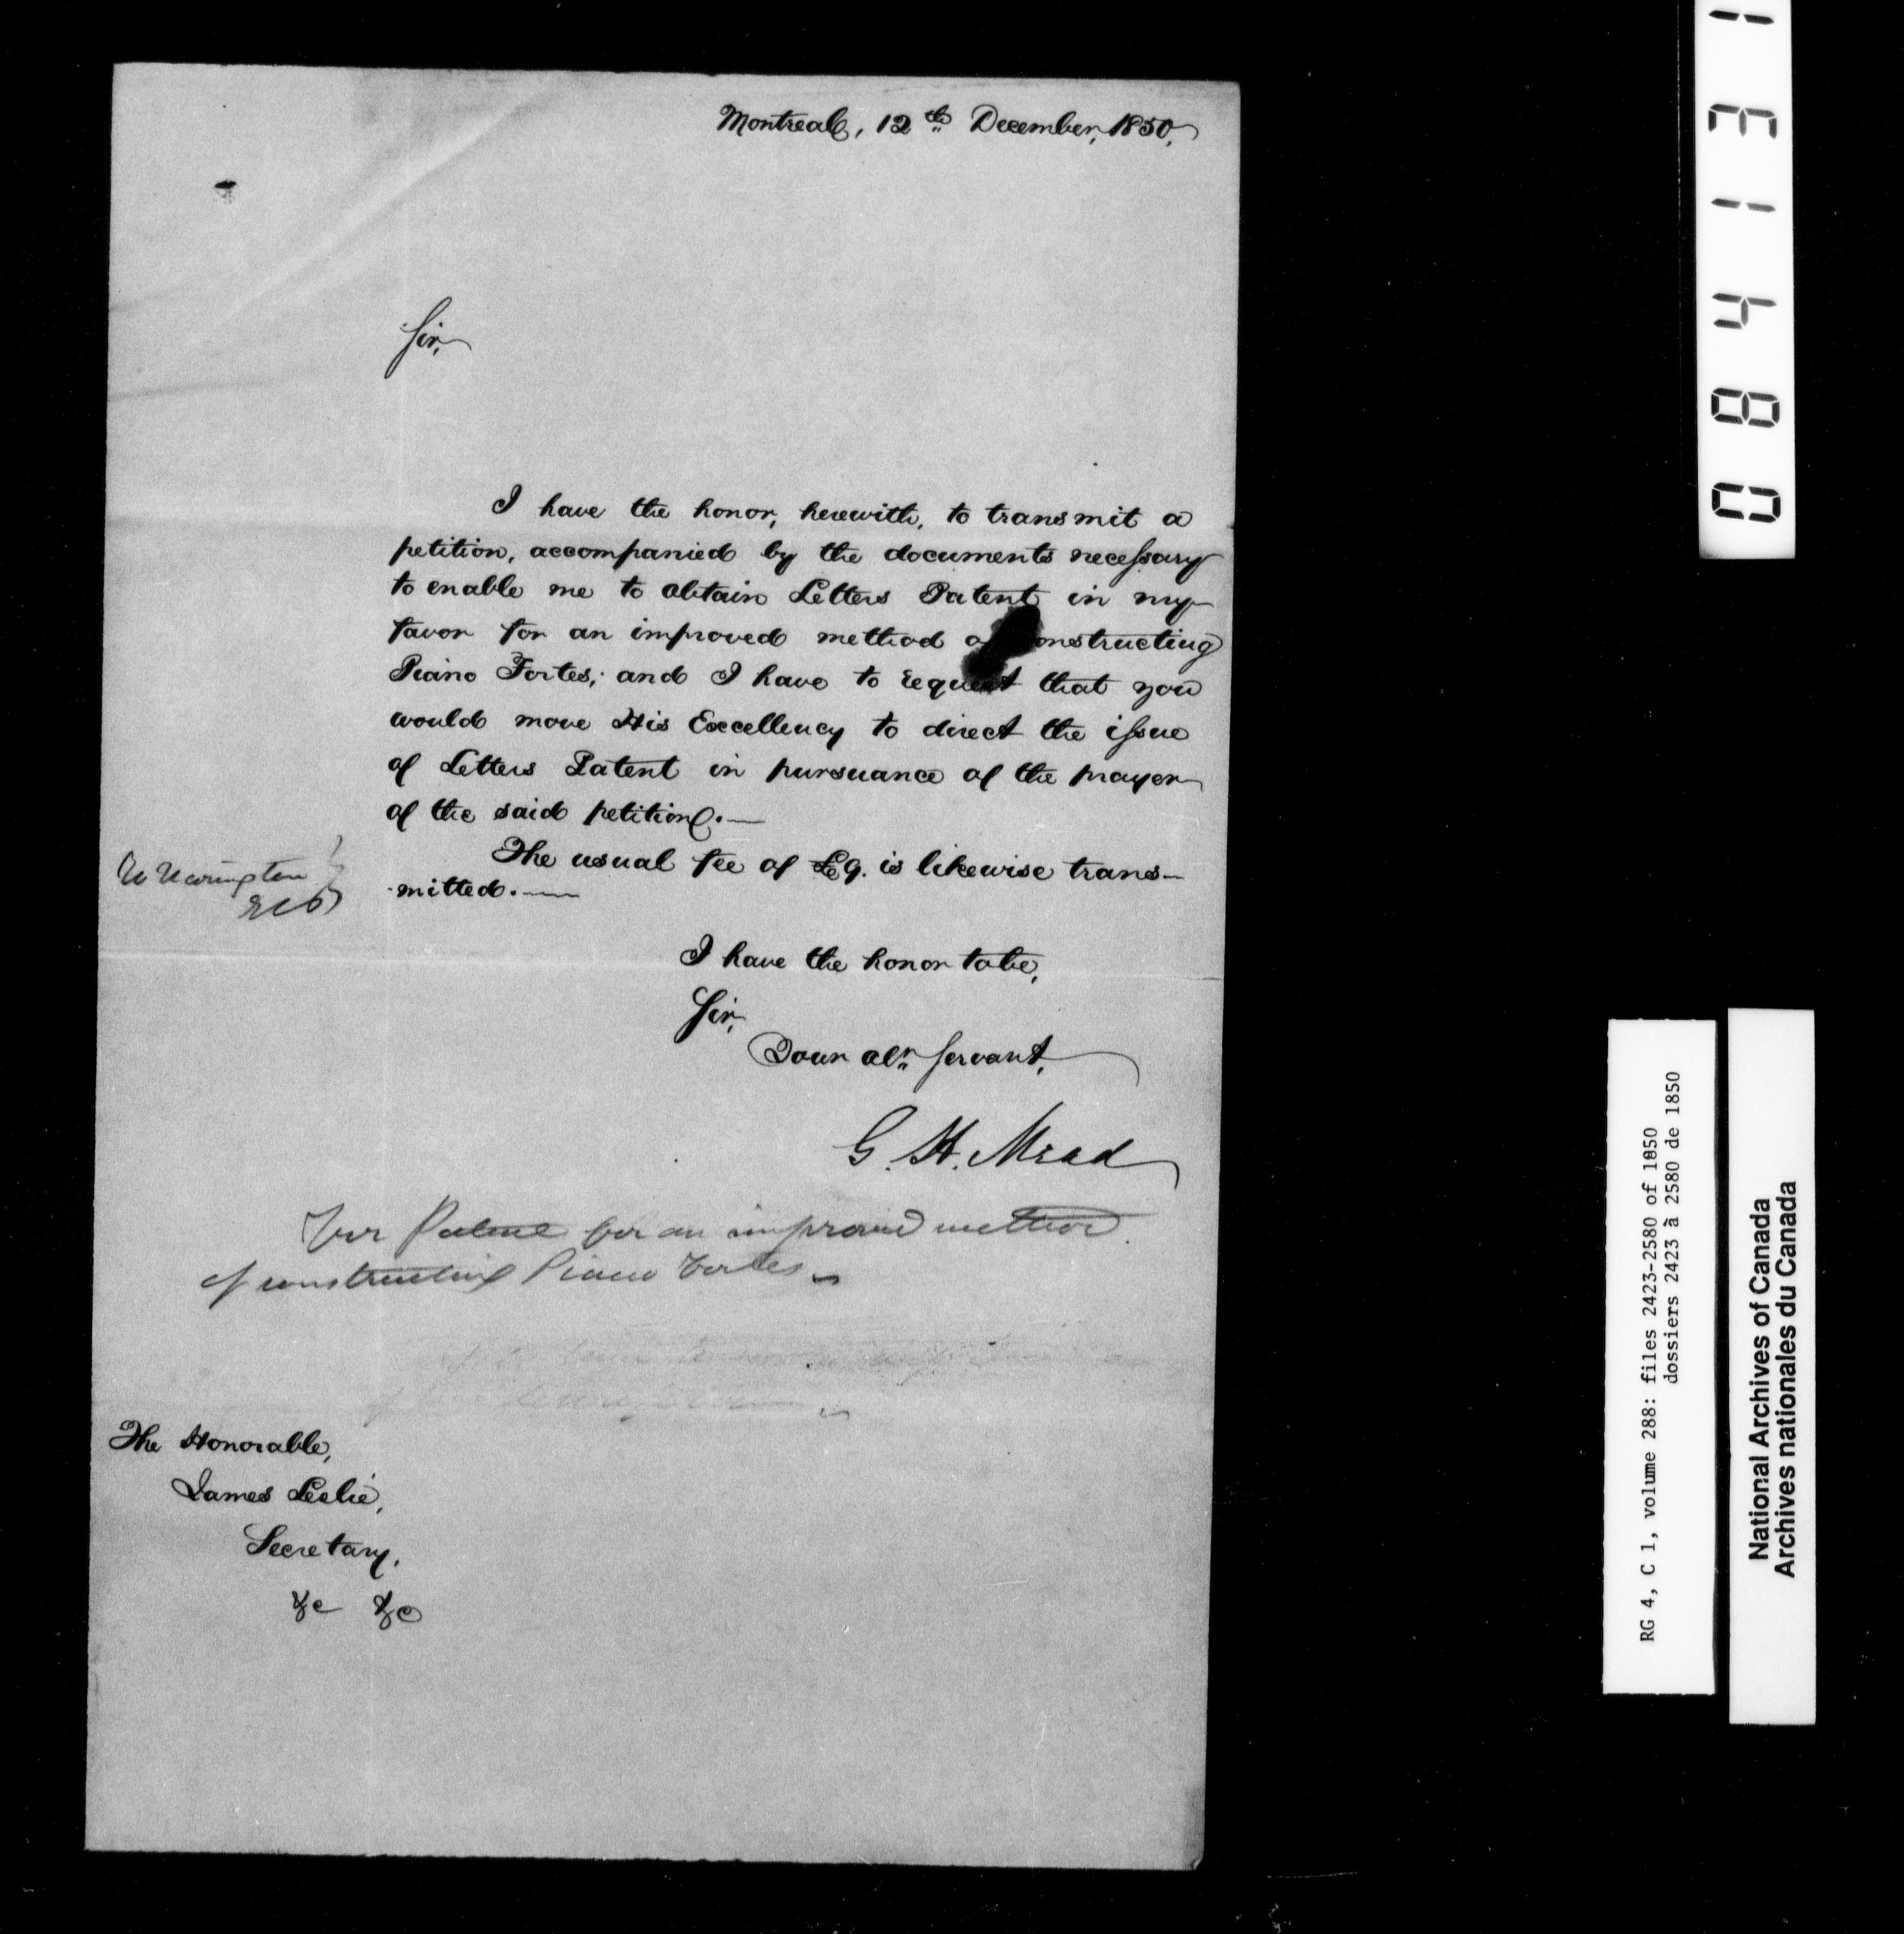 Montreal, 12th December, 1850,
Sir,
I have the honor, herewith, to transmit a
petition, accompanied by the documents necessary
to enable me to obtain Letters Patent in my
favor for an improved method of constructing
Piano Fortes; and I have to request that you
would move His Excellency to direct the issue
of Letters Patent in pursuance of the prayer
of the said petition.—
The usual fee of £9. is likewise trans-
mitted.—
I have the honor to be,
Sir,
Your obt. Servant,
G. H. Mead
For Patent for an improved method
of constructing Piano Fortes
The Honorable,
James Leslie,
Secretary,
&c &c
084131
RG 4, C 1, volume 288: files 2423-2580 of 1850
dossiers 2423 à 2580 de 1850
National Archives of Canada
Archives nationales du Canada